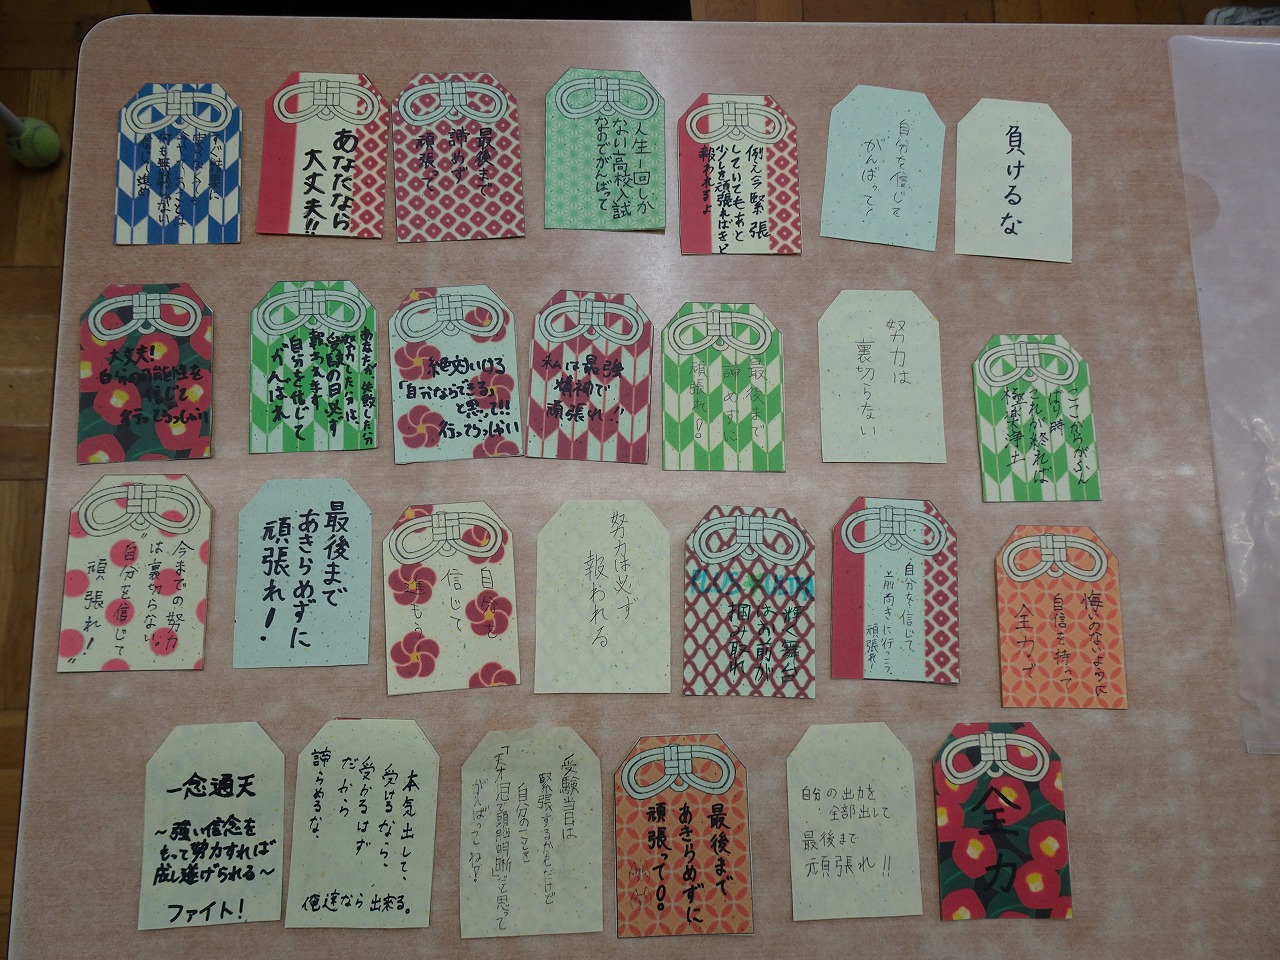 すぐ結果に
何も無駄じゃない
信じて進め
あなたなら
大丈夫!!
最後まで
諦めず
頑張って
人生一回しか
ない高校入試
なのでがんばって
例え今緊張
していてもあと
少しを頑張ればきっと
報われるよ
自分を信じて
がんばって!
負けるな
大丈夫!
自分の可能性を
信じて
行ってらっしゃい
あなたが失敗した分
努力した分は、
自分を信じて
がんばれ
絶対いける
「自分ならできる」
と思って!!
行ってらっしゃい
私は最強
精神で
頑張れ!!
最後まで
諦めずに
頑張れ!
努力は
裏切らない
ここからがふん
ばり時
これが終れば
極楽浄土
今までの努力
は裏切らない。
自分を信じて
頑張れ!
最後まで
あきらめずに
頑張れ!
自分を
信じて
進もう
努力は必ず
報われる
輝く舞台
はお前が
掴み取れ
自分を信じて、
前向きに行こう。
頑張れ!
悔いのないように
自信を持って
全力で
一念通天
~強い信念を
もって努力すれば
成し遂げられる~
ファイト!
本気出して、
受けるなら、
受かるはず
だから
諦らめるな、
俺達なら出来る。
受験当日は
緊張するかもだけど
自分のことを
「天才児で頭脳明晰」だと思って
がんばってね!
最後まで
あきらめずに
頑張って!
自分の出力を
全部出して
最後まで
頑張れ!!
全力